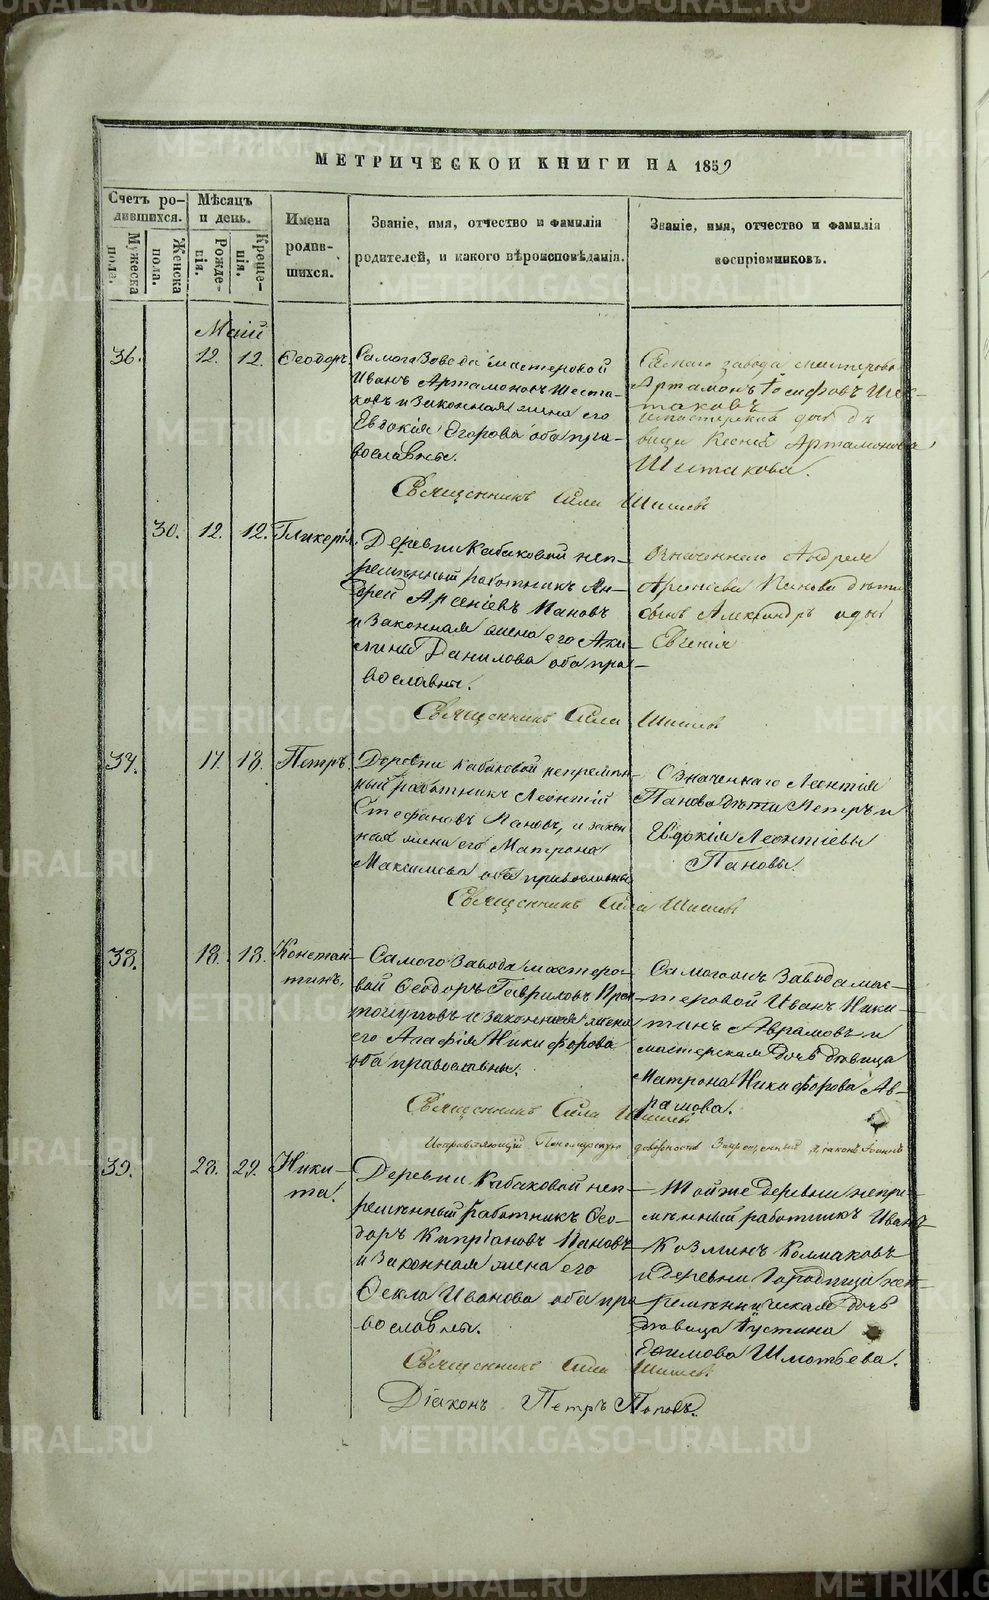 МЕТРИЧЕСКОЙ КНИГИ НА 1859
Счетъ ро-
дившихся.
Мужеска
пола.
Женска
пола.
Мѣсяцъ
и день.
Рожде-
нія.
Креще-
нія.
Имена
родив-
шихся.
Званіе, имя, отчество и фамилія
родителей, и какого вѣроисповѣданія.
Званіе, имя, отчество и фамилія
воспріемниковъ.
Маій
36. 12. 12. Ѳеодоръ.
Самаго Завода мастеровой
Иванъ Артамоновъ Шеста-
ковъ и законная жена его
Евдокия Егорова оба пра-
вославны.
Самаго завода мастерово
Артамонъ Іосифовъ Шес-
таковъ
мастерская дочь дѣ
вица Ксенія Артамонова
Шестакова.
Священникъ Сила Шишев
30. 12. 12. Гликерія.
Деревни Кабаковой неп-
ремѣнный работникъ Ан-
дрей Арсеніевъ Пановъ
и законная жена его Аки-
лина Данилова оба пра-
вославны.
Означеннаго Андрея
Арсеніева Панова дѣти
сынъ Александръ и дочь
Евгенія
Священникъ Сила Шишев
37. 17. 18. Петръ.
Деревни Кабаковой непремѣн-
ный работникъ Леонтій
Стефановъ Пановъ, и закон-
ная жена его Матрона
Максимова оба православны
Означеннаго Леонтія
Панова дѣти Петръ и
Евдокія Леонтіевы
Пановы.
Священникъ Сила Шишев
38. 18. 18. Констан-
тинъ.
Самого Завода мастеро-
вой Ѳеодоръ Гавриловъ
и законная жена
его Агафія Никифорова
оба православны.
Самогожъ Завода мас-
теровой Иванъ Ники-
тинъ Аврамовъ и
мастерская дочь дѣвица
Матрона Никифорова Ав-
рамова.
Священникъ Сила Шишев
Исправляющій Пономарскую должность діаконъ Іоаннъ
39. 28. 29. Ники-
та.
Деревни Кабаковой неп-
ремѣнный работникъ Ѳео-
доръ Кипріановъ Пановъ
и законная жена его
Ѳекла Иванова оба пра
вославны.
Той же деревни непре-
мѣнный работникъ Иванъ
Козминъ Колмаковъ
и деревни Городища неп-
ремѣнническая дочь
дѣвица Іустина
Ефимова Шмотьева.
Священникъ Сила Шишев
Діаконъ Петръ Поповъ.
METRIKI.GASO-URAL.RU